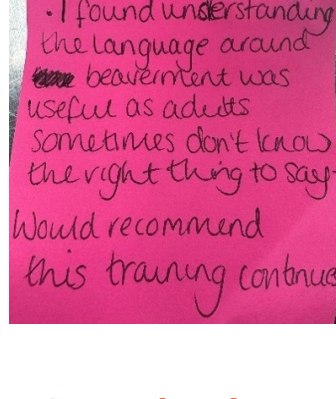 · I found understanding
the language around
beaverment was
useful as adults
sometimes don't know
the right thing to say-
Would recommend
this training continue